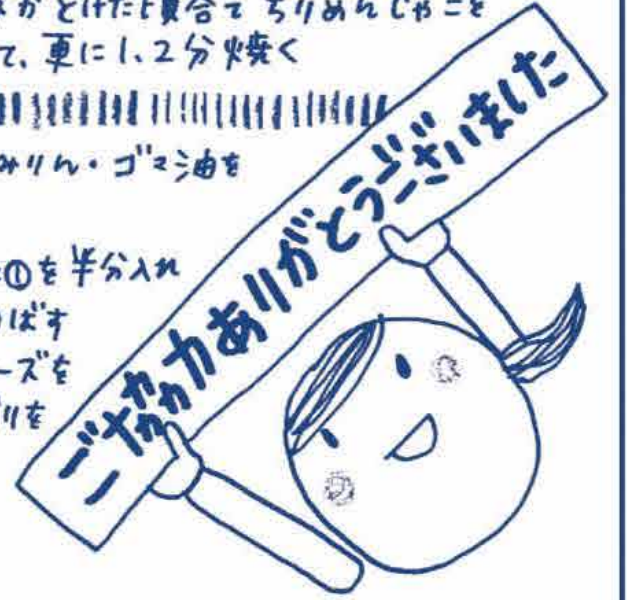 がとけた頃合で ちりめんじゃこを
て、更に1、2分焼く
みりん・ゴマ油を
①を半分入れ
ばす
ーズを
リを
ご協力ありがとうございました